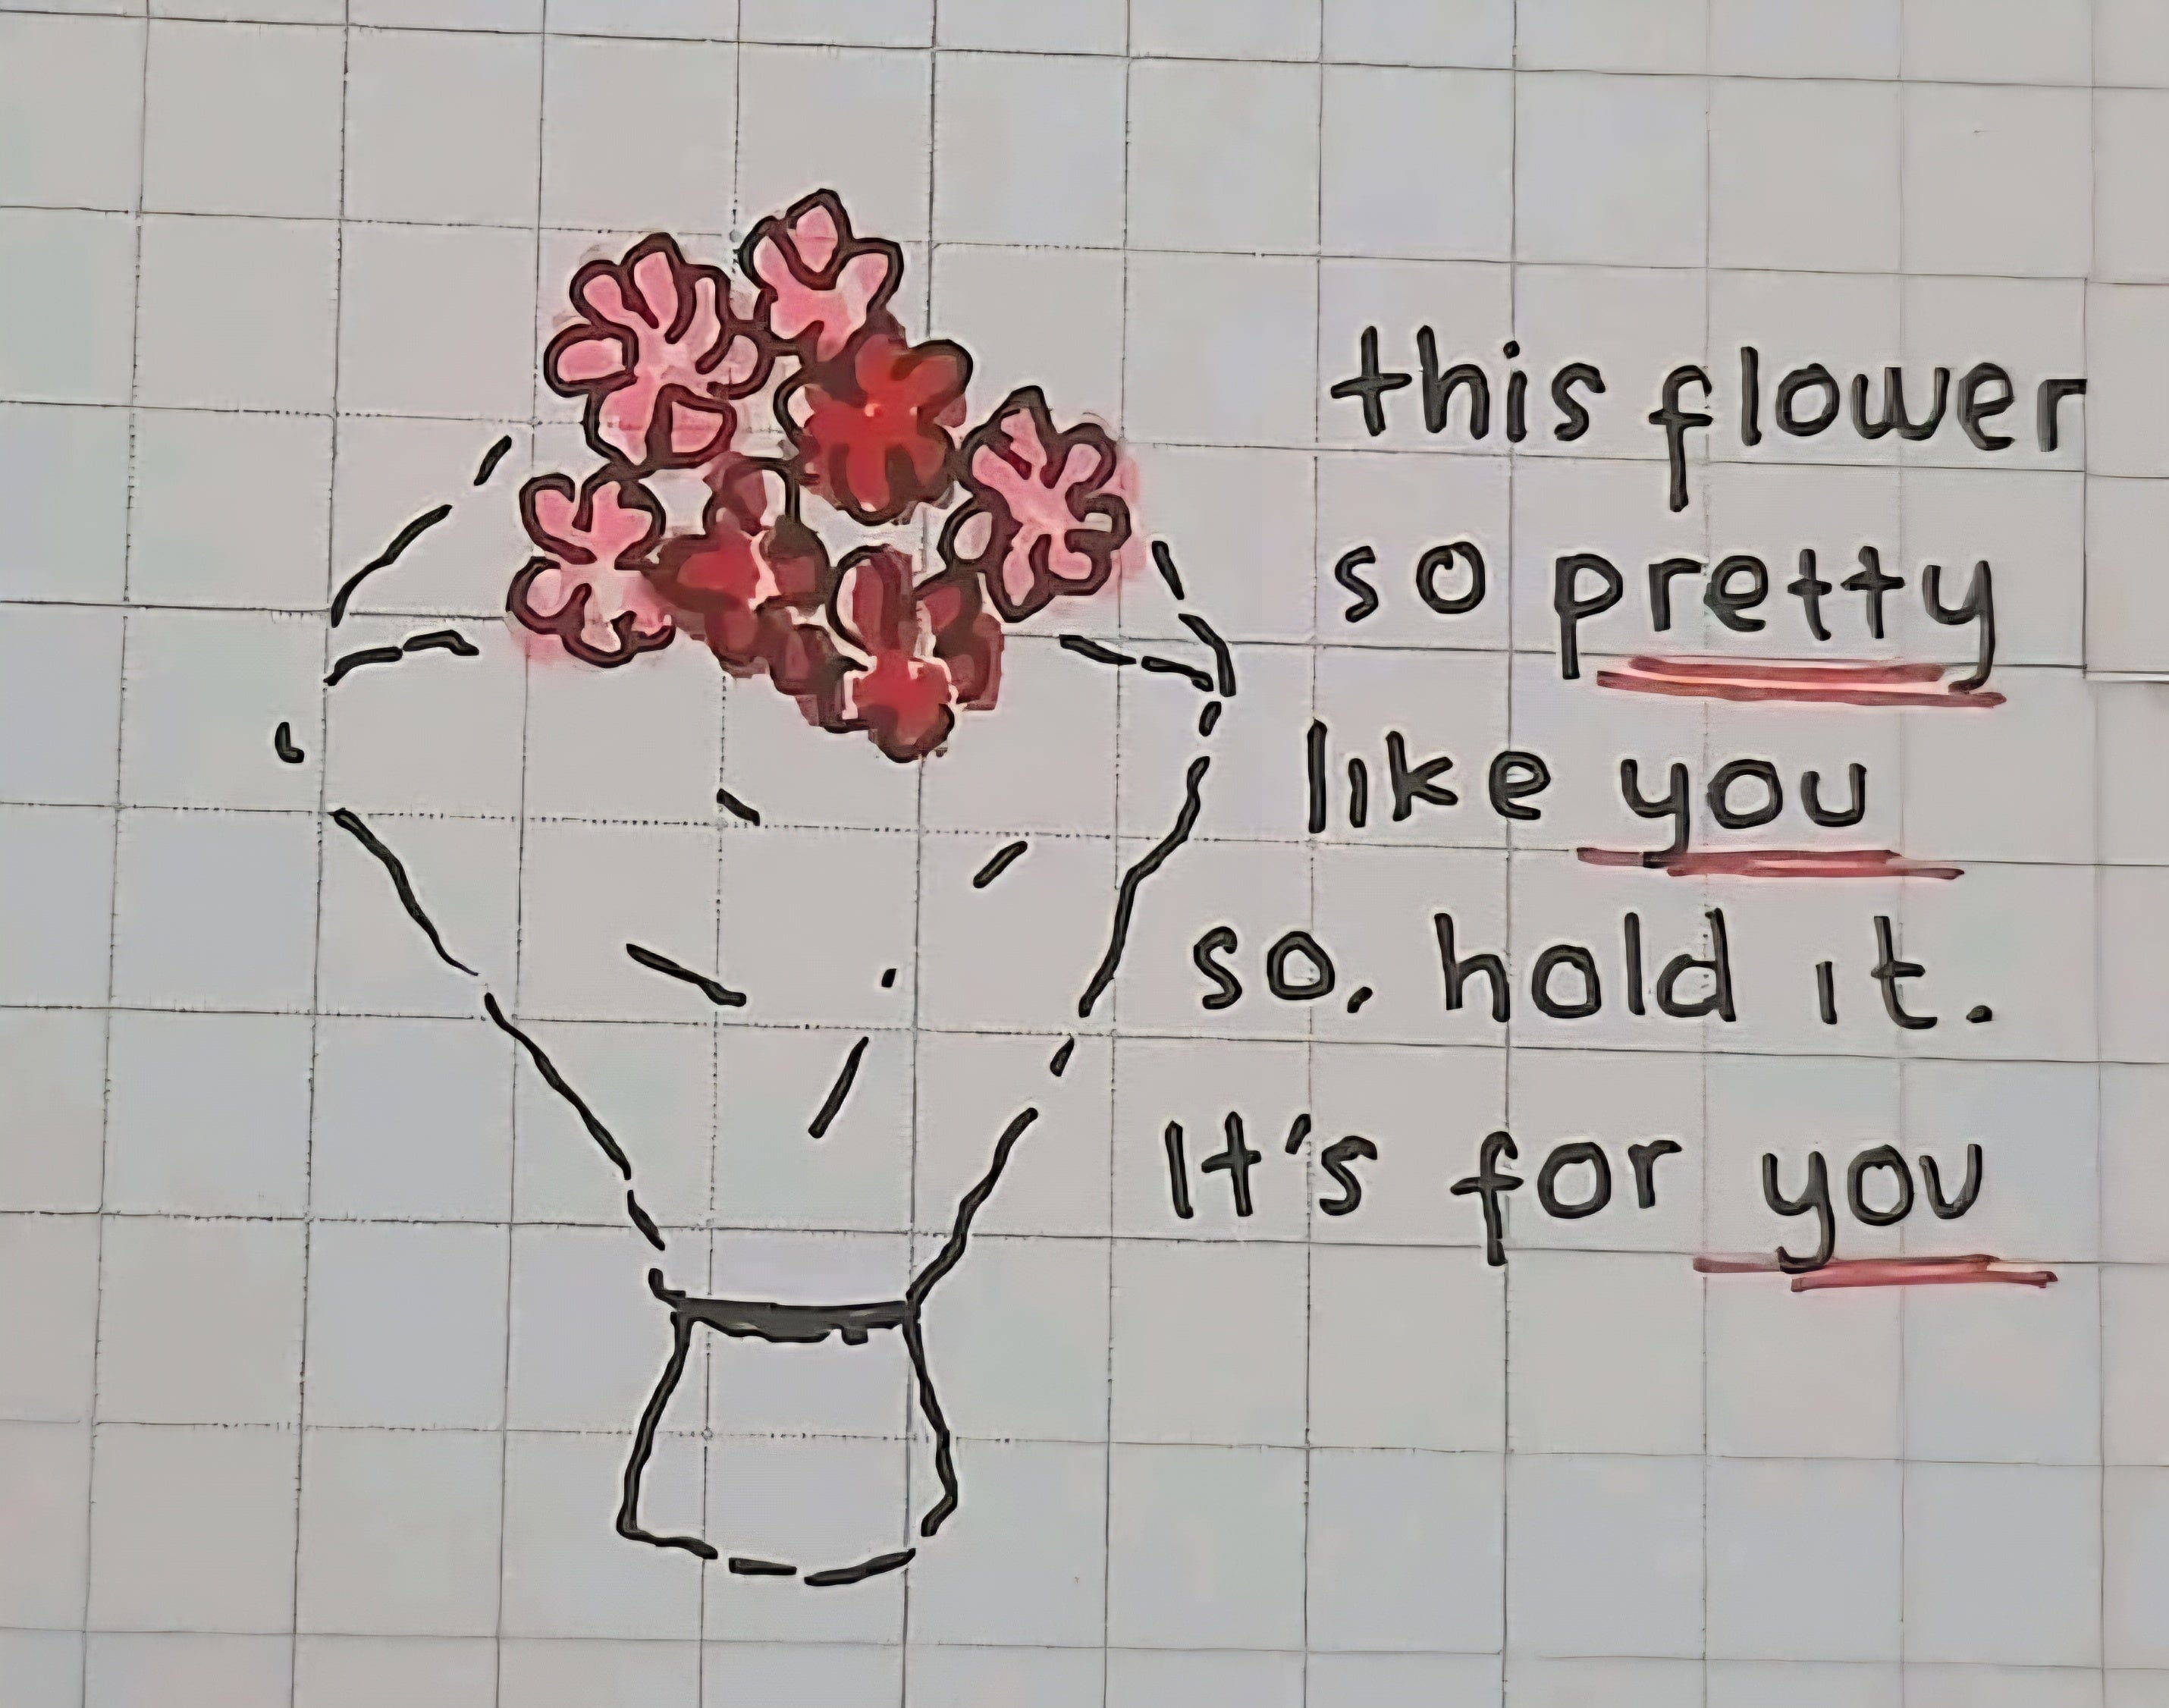 this flower
so pretty
like you
so, hold it.
It's for you